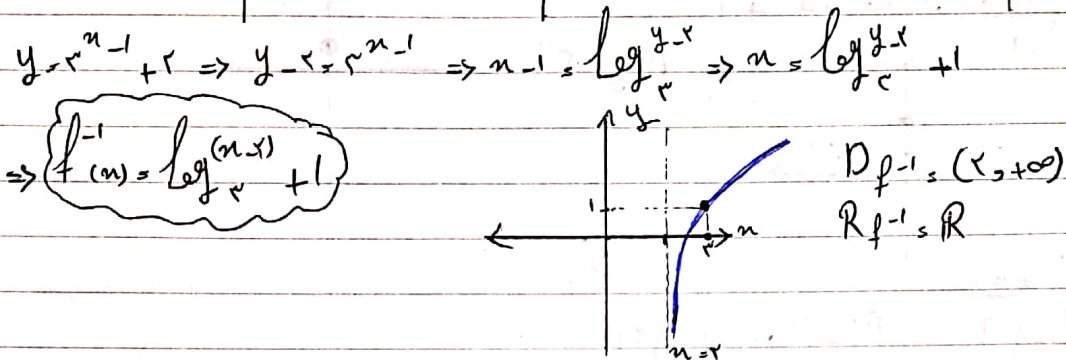 y = ۳^(x-1) + ۲ => y - ۲ = ۳^(x-1) => x - 1 = log_۳^(y-۲) => x = log_۳^(y-۲) + 1
=> f^-1(x) = log_۳^(x-۲) + 1
y
D f^-1 = (۲, +∞)
1
x
R f^-1 = ℝ
۳
x = ۲